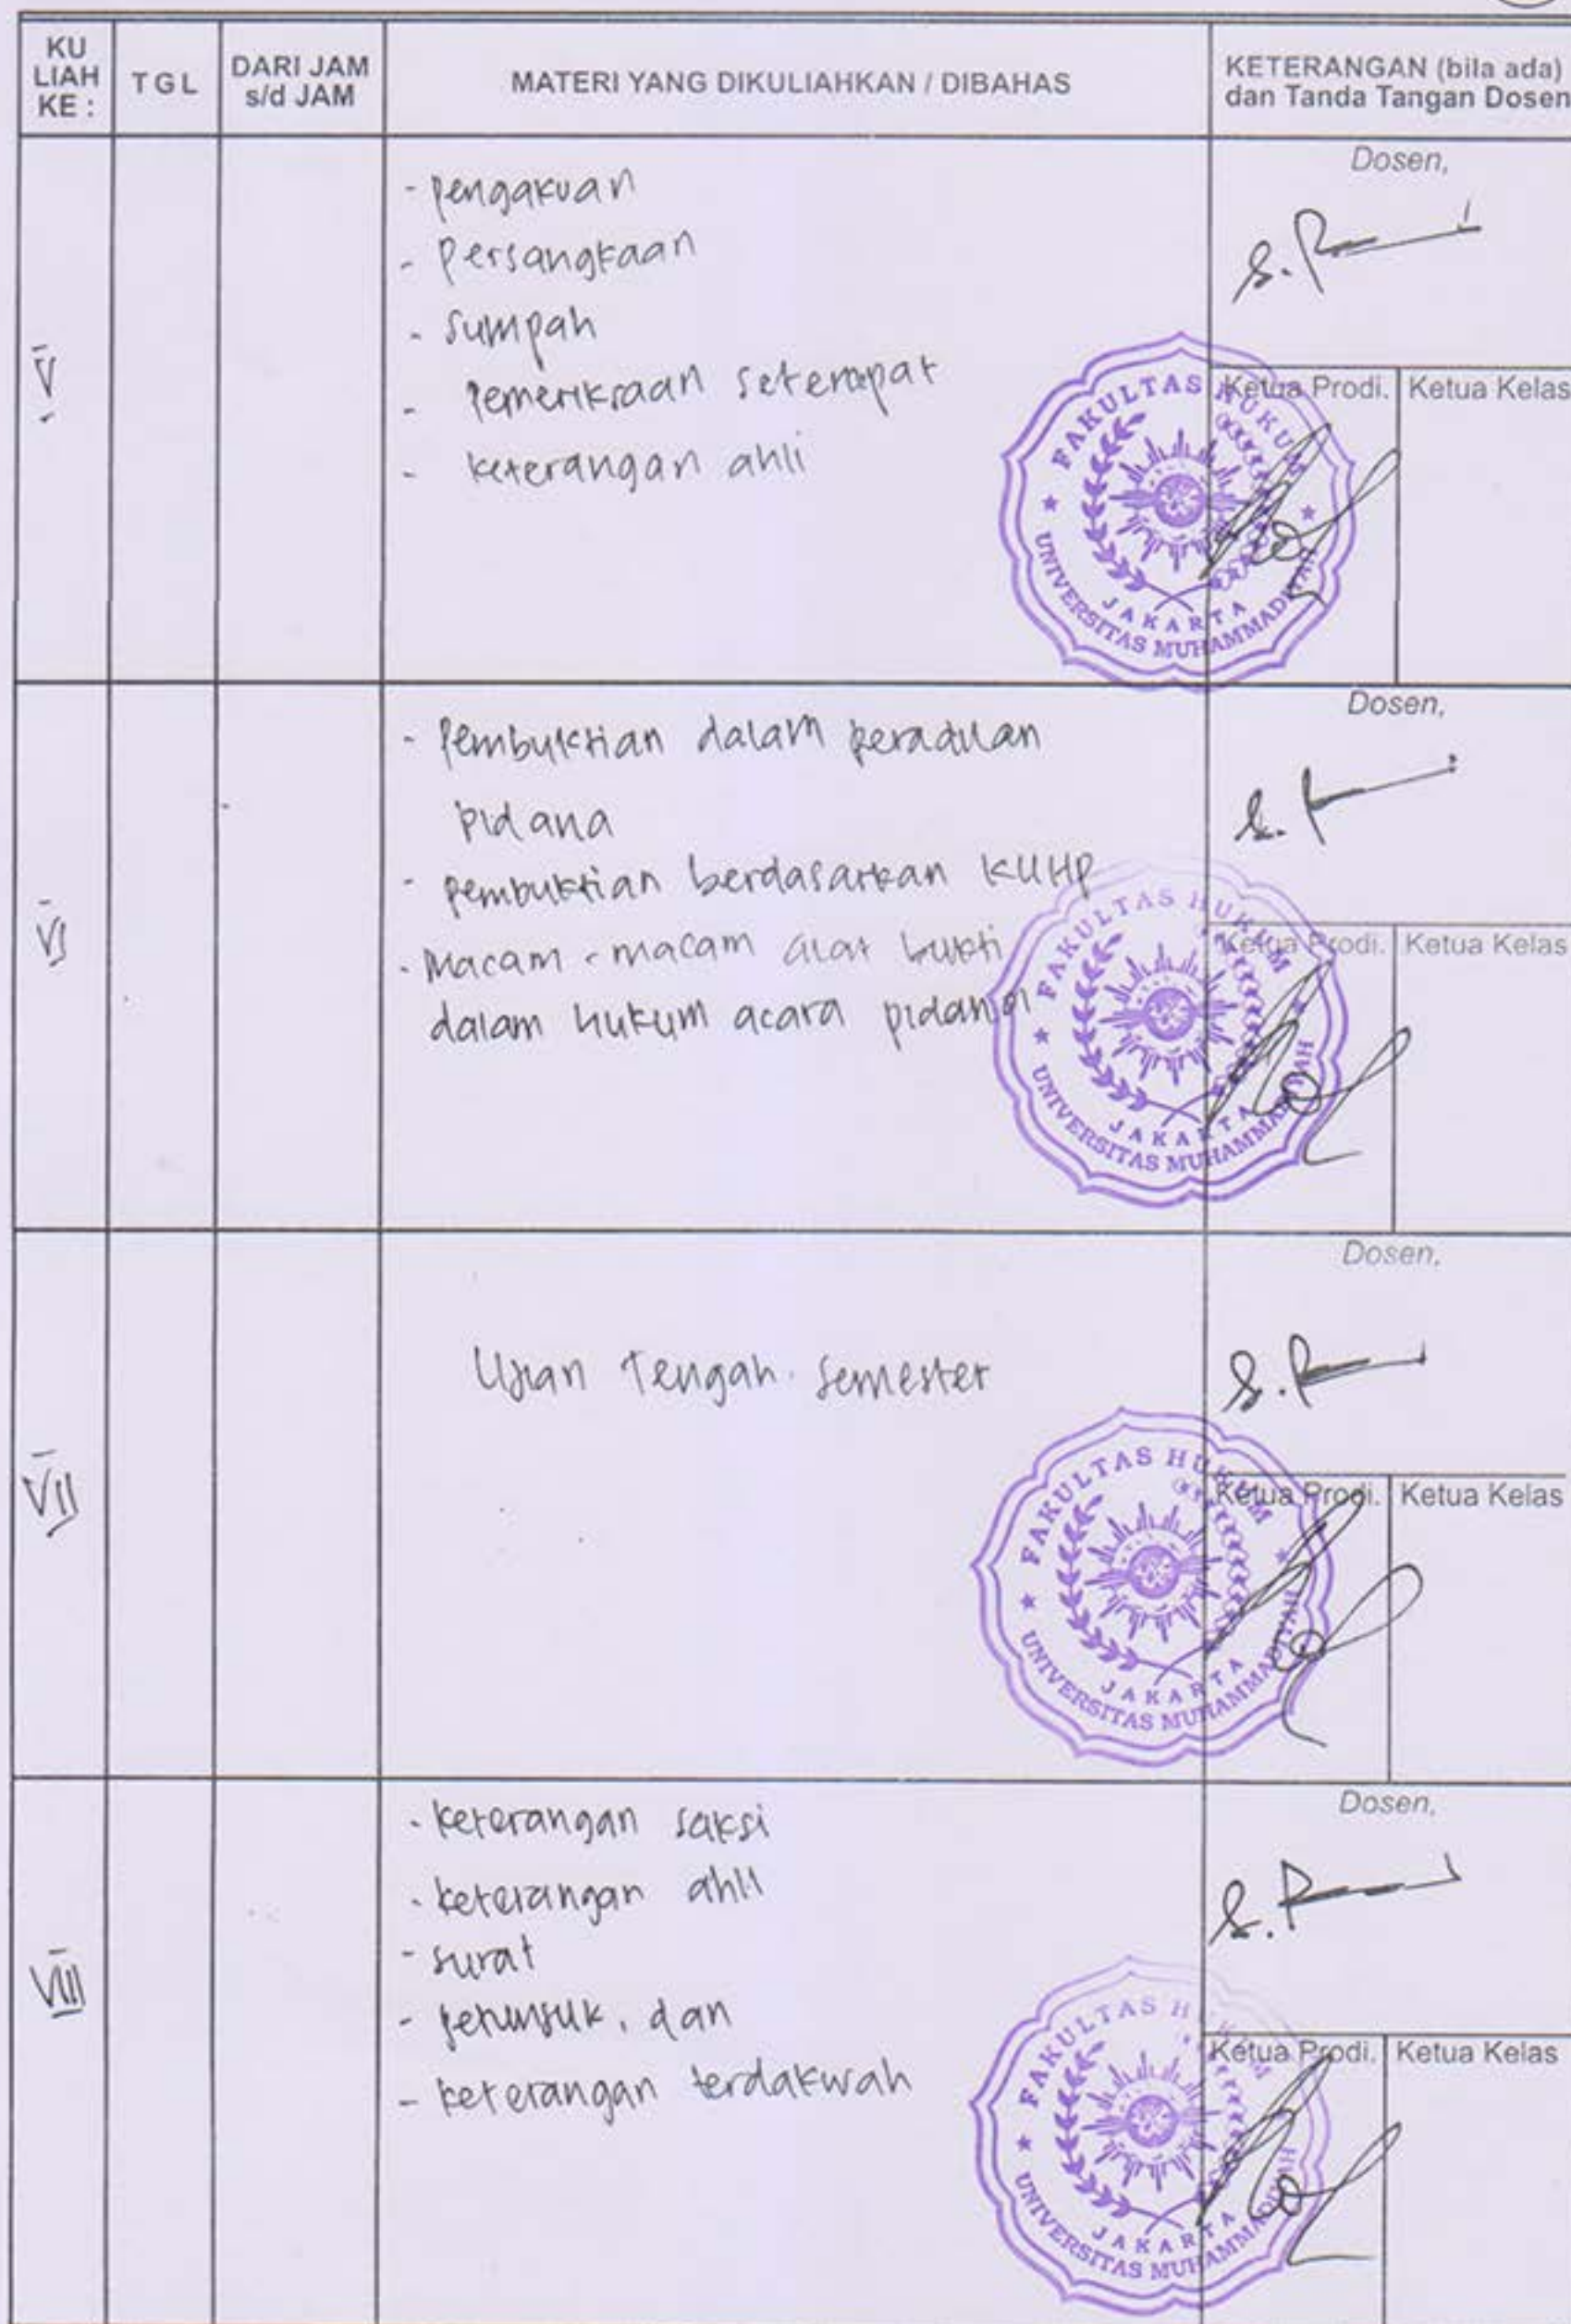 KU LIAH KE :
TGL
DARI JAM s/d JAM
MATERI YANG DIKULIAHKAN / DIBAHAS
KETERANGAN (bila ada) dan Tanda Tangan Dosen
V
- pengakuan
- Persangkaan
- Sumpah
- Pemeriksaan setempat
- keterangan ahli
Dosen,
Ketua Prodi.
Ketua Kelas
FAKULTAS HUKUM
UNIVERSITAS MUHAMMADIYAH
JAKARTA
VI
- Pembuktian dalam peradilan
pidana
- pembuktian berdasarkan KUHP
- Macam - macam alat bukti
dalam hukum acara pidana
Dosen,
Ketua Prodi.
Ketua Kelas
FAKULTAS HUKUM
UNIVERSITAS MUHAMMADIYAH
JAKARTA
VII
Ujian Tengah Semester
Dosen,
Ketua Prodi.
Ketua Kelas
FAKULTAS HUKUM
UNIVERSITAS MUHAMMADIYAH
JAKARTA
VIII
- keterangan saksi
- keterangan ahli
- surat
- petunjuk, dan
- keterangan terdakwah
Dosen,
Ketua Prodi.
Ketua Kelas
FAKULTAS HUKUM
UNIVERSITAS MUHAMMADIYAH
JAKARTA